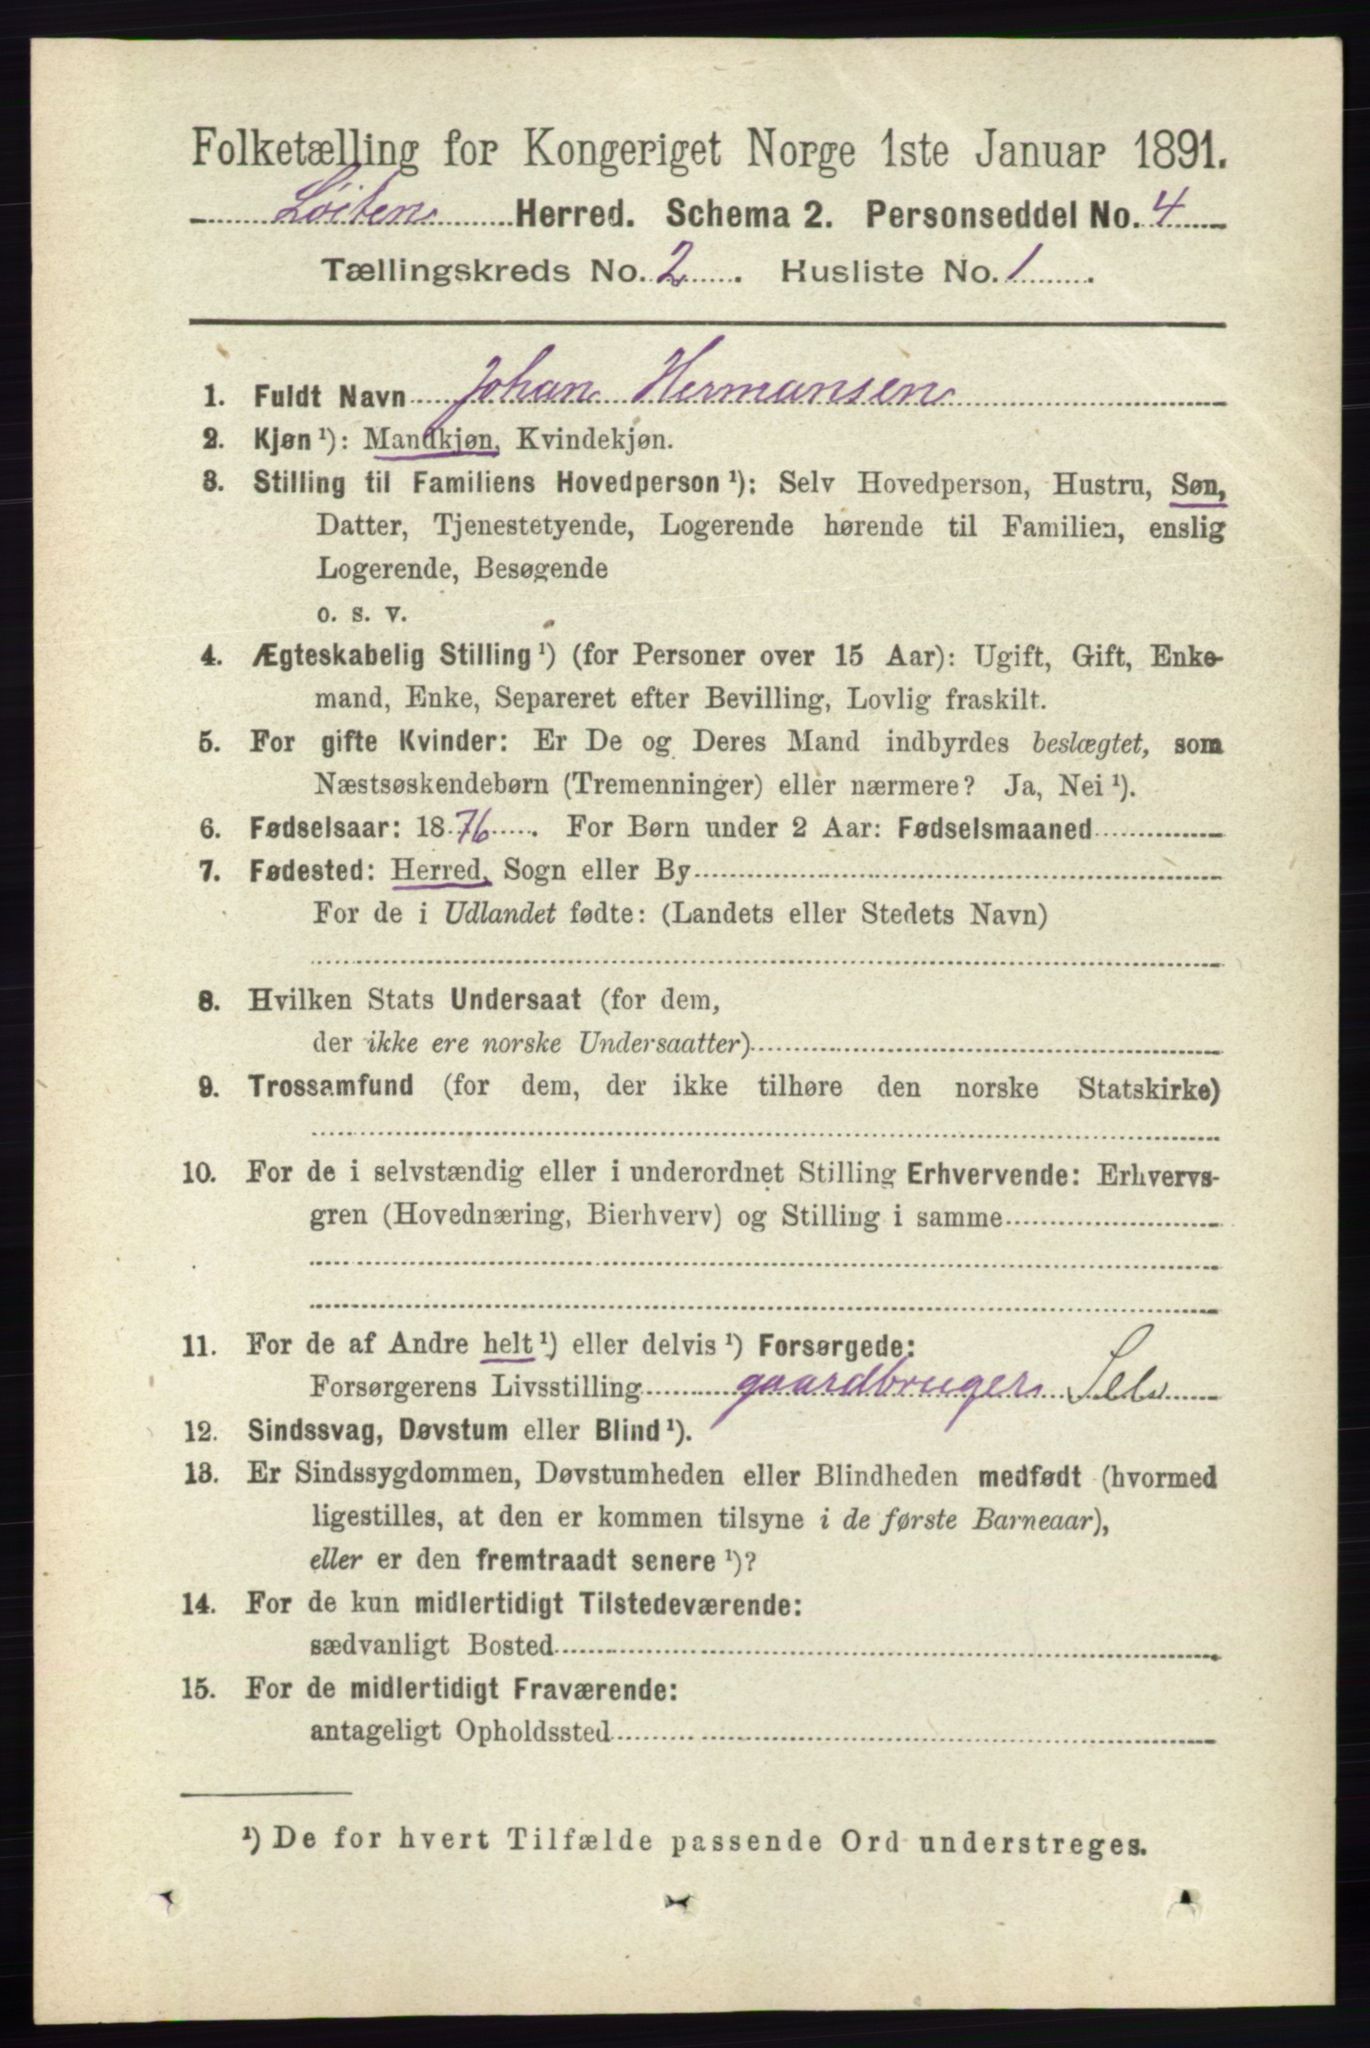 Folketælling for Kongeriget Norge 1ste Januar 1891.
Løiten Herred. Schema 2. Personseddel No. 4
Tællingskreds No. 2. Husliste No. 1.
1. Fuldt Navn Johan Hermansen
2. Kjøn¹): Mandkjøn, Kvindekjøn.
3. Stilling til Familiens Hovedperson¹): Selv Hovedperson, Hustru, Søn,
Datter, Tjenestetyende, Logerende hørende til Familien, enslig
Logerende, Besøgende
o. s. v.
4. Ægteskabelig Stilling¹) (for Personer over 15 Aar): Ugift, Gift, Enke-
mand, Enke, Separeret efter Bevilling, Lovlig fraskilt.
5. For gifte Kvinder: Er De og Deres Mand indbyrdes beslægtet, som
Næstsøskendebørn (Tremenninger) eller nærmere? Ja, Nei¹).
6. Fødselsaar: 1876. For Børn under 2 Aar: Fødselsmaaned
7. Fødested: Herred, Sogn eller By
For de i Udlandet fødte: (Landets eller Stedets Navn)
8. Hvilken Stats Undersaat (for dem,
der ikke ere norske Undersaatter)
9. Trossamfund (for dem, der ikke tilhøre den norske Statskirke)
10. For de i selvstændig eller i underordnet Stilling Erhvervende: Erhvervs-
gren (Hovednæring, Bierhverv) og Stilling i samme
11. For de af Andre helt¹) eller delvis¹) Forsørgede:
Forsørgerens Livsstilling gaardbruger Selv
12. Sindssvag, Døvstum eller Blind¹).
13. Er Sindssygdommen, Døvstumheden eller Blindheden medfødt (hvormed
ligestilles, at den er kommen tilsyne i de første Barneaar),
eller er den fremtraadt senere¹)?
14. For de kun midlertidigt Tilstedeværende:
sædvanligt Bosted
15. For de midlertidigt Fraværende:
antageligt Opholdssted
¹) De for hvert Tilfælde passende Ord understreges.